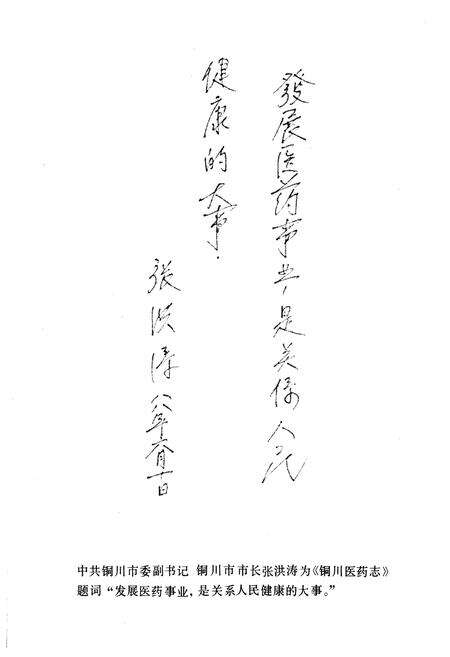 發展医药事业,是关系人民
健康的大事.
张洪涛
八八年六月十日
中共铜川市委副书记 铜川市市长张洪涛为《铜川医药志》
题词“发展医药事业,是关系人民健康的大事。”